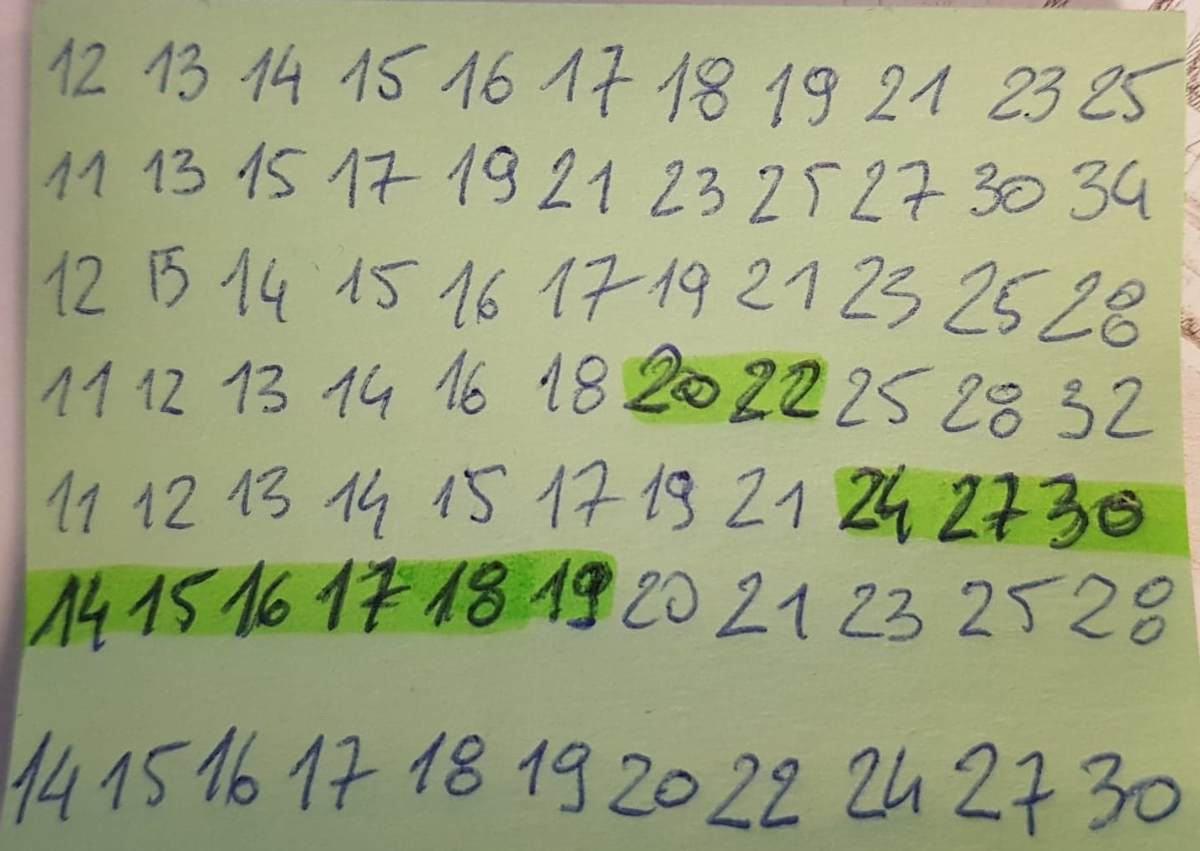 12 13 14 15 16 17 18 19 21 23 25
11 13 15 17 19 21 23 25 27 30 34
12 13 14 15 16 17 19 21 23 25 28
11 12 13 14 16 18 20 22 25 28 32
11 12 13 14 15 17 19 21 24 27 30
14 15 16 17 18 19 20 21 23 25 28
14 15 16 17 18 19 20 22 24 27 30